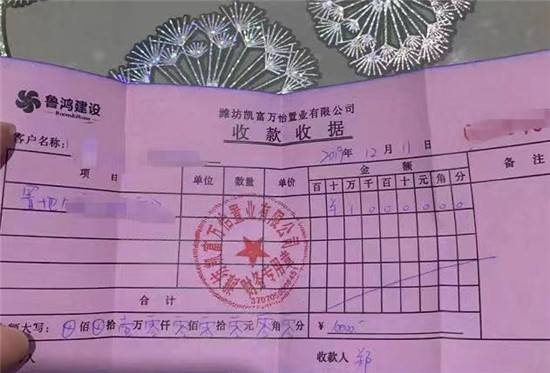 鲁鸿建设
潍坊凯富万怡置业有限公司
收款收据
客户名称:
2019年 12月 11日
项目 单位 数量 单价 金额 备注
百 十 万 千 百 十 元 角 分
置地
¥ 1 0 0 0 0 0 0
潍坊凯富万怡置业有限公司
财务专用章
合计
额大写: 佰 拾 壹 万 零 仟 零 佰 零 拾 零 元 零 角 零 分 ¥ 10000
收款人 郑